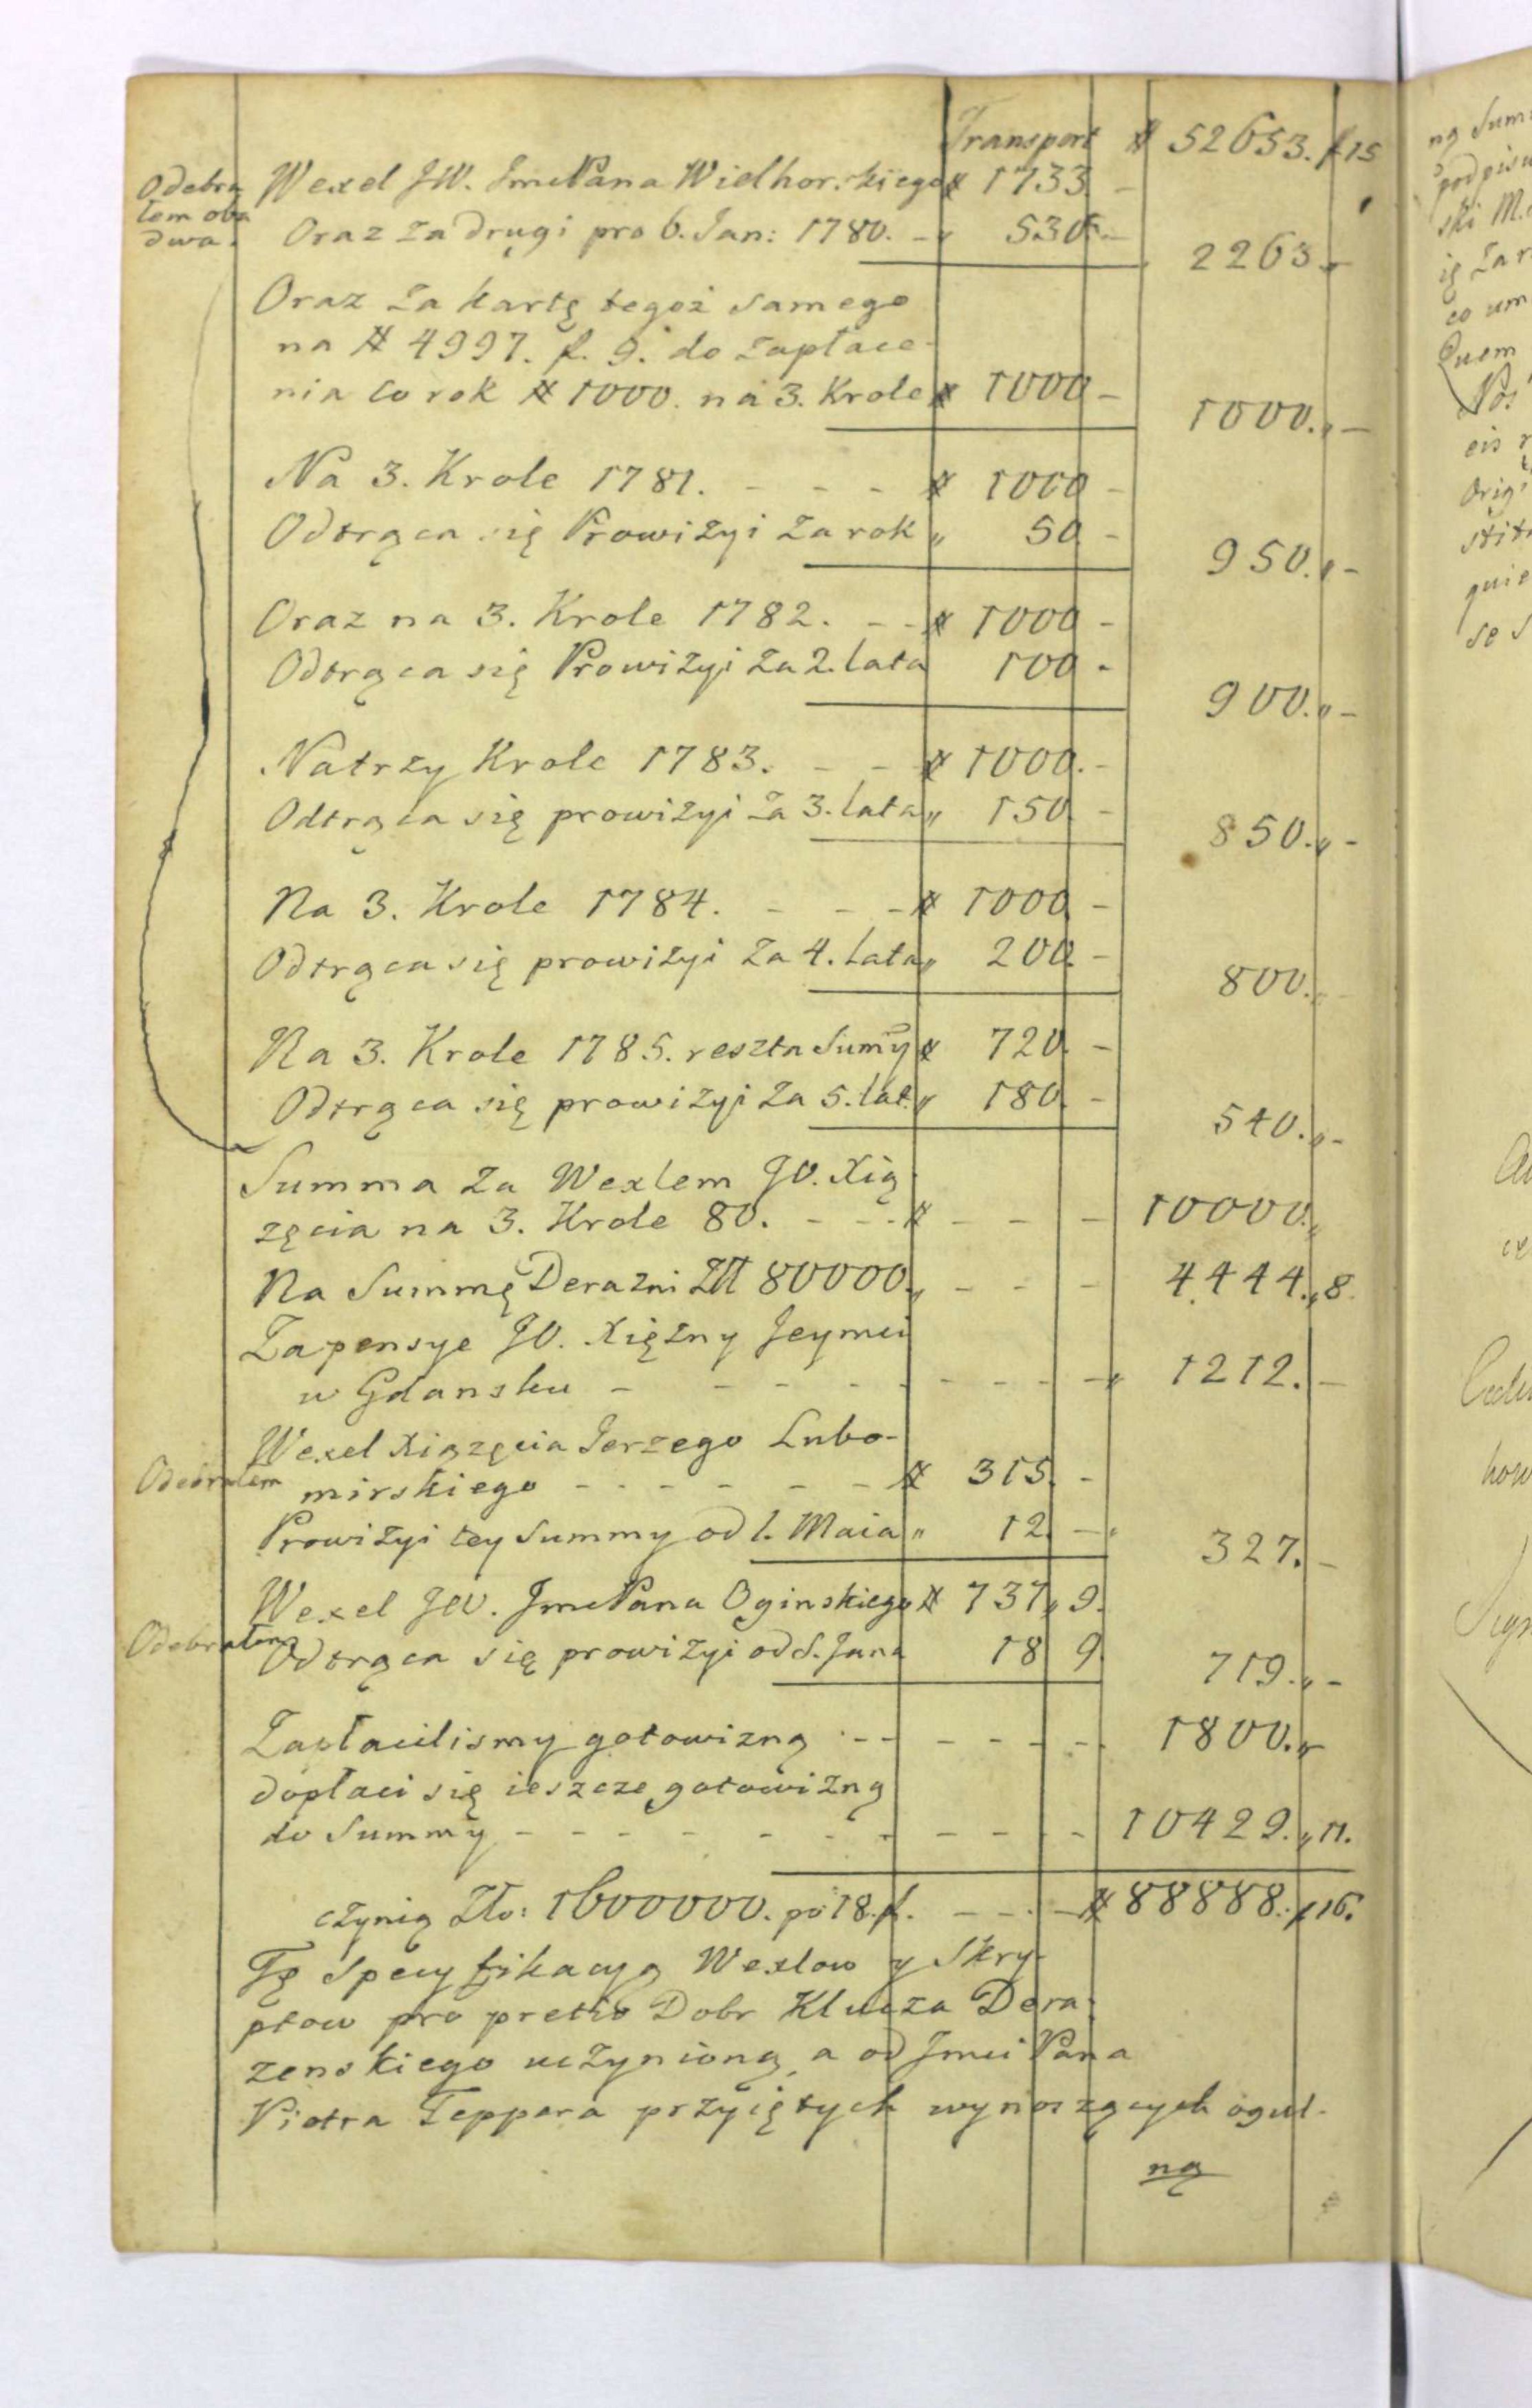 Transport # 52653. f 15
Odebra Wexel JW. JmcPana Wielhorskiego # 1733 –
łem oba
dwa. Oraz za drugi pro 6. Jan: 1780. – „ 530. – 2263. –
Oraz za kartę tegoż samego
na # 4997. f. 9. do zapłace-
nia co rok # 1000. na 3. Krole # 1000 – 1000. „ –
Na 3. Krole 1781. – – – # 1000 –
Odtrąca się Prowizyi za rok „ 50 – 950. „ –
Oraz na 3. Krole 1782. – – # 1000 –
Odtrąca się Prowizyi za 2. lata 100 – 900. „ –
Na trzy Krole 1783. – – # 1000. –
Odtrąca się prowizyi za 3. lata „ 150. – 850. „ –
Na 3. Krole 1784. – – – # 1000 –
Odtrąca się prowizyi za 4. lata „ 200. – 800. „ –
Na 3. Krole 1785. reszta Sumy # 720. –
Odtrąca się prowizyi za 5. lat „ 180. – 540. „ –
Summa za Wexlem JO. Xią
zęcia na 3. Krole 80. – – – # – – – 10000. „
Na Summę Derazni Złł 80000. „ – – – 4444. „ 8.
Za pensye JO. Xiężny Jeymci
w Gdansku – – – – – – – – – „ 1212. –
Wexel Xiązęcia Jerzego Lubo-
Odebrałem mirskiego – – – – – – # 315. –
Prowizyi tey Summy od 1. Maia „ 12. – „ 327. –
Wexel JW. JmcPana Oginskiego # 737 „ 9.
Odebrałem Odtrąca się prowizyi od S. Jana 18 9. 719. „ –
Zapłacilismy gotowizną – – – – – – 1800. „ –
dopłaci się ieszcze gotowizną
do Summy – – – – – – – – – 10429. „ 11.
czynią Zło: 1600000. po 18. f. – – – # 88888. f 16.
Tę specyfikacyą Wexlow y Skry-
ptow pro pretio Dobr Klucza Dera-
zenskiego uczynioną, a od Jmci Pana
Piotra Teppera przyiętych wynoszących ogul-
ną